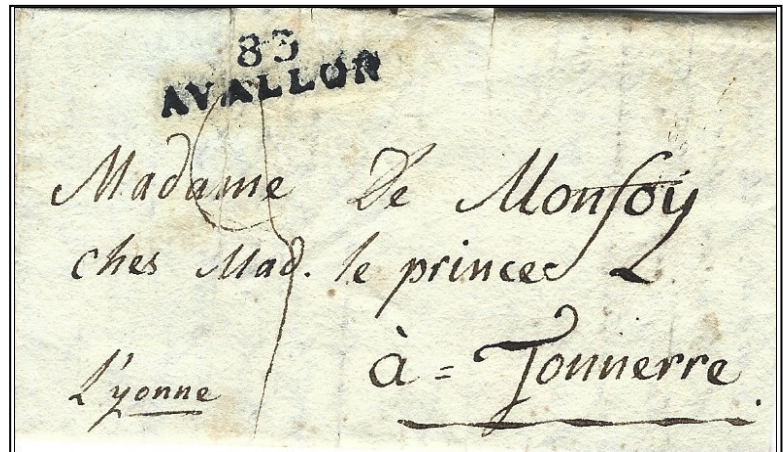 83
AVALLON
Madame De Monfoy
ches Mad. le prince
à = Tonnerre
L'yonne